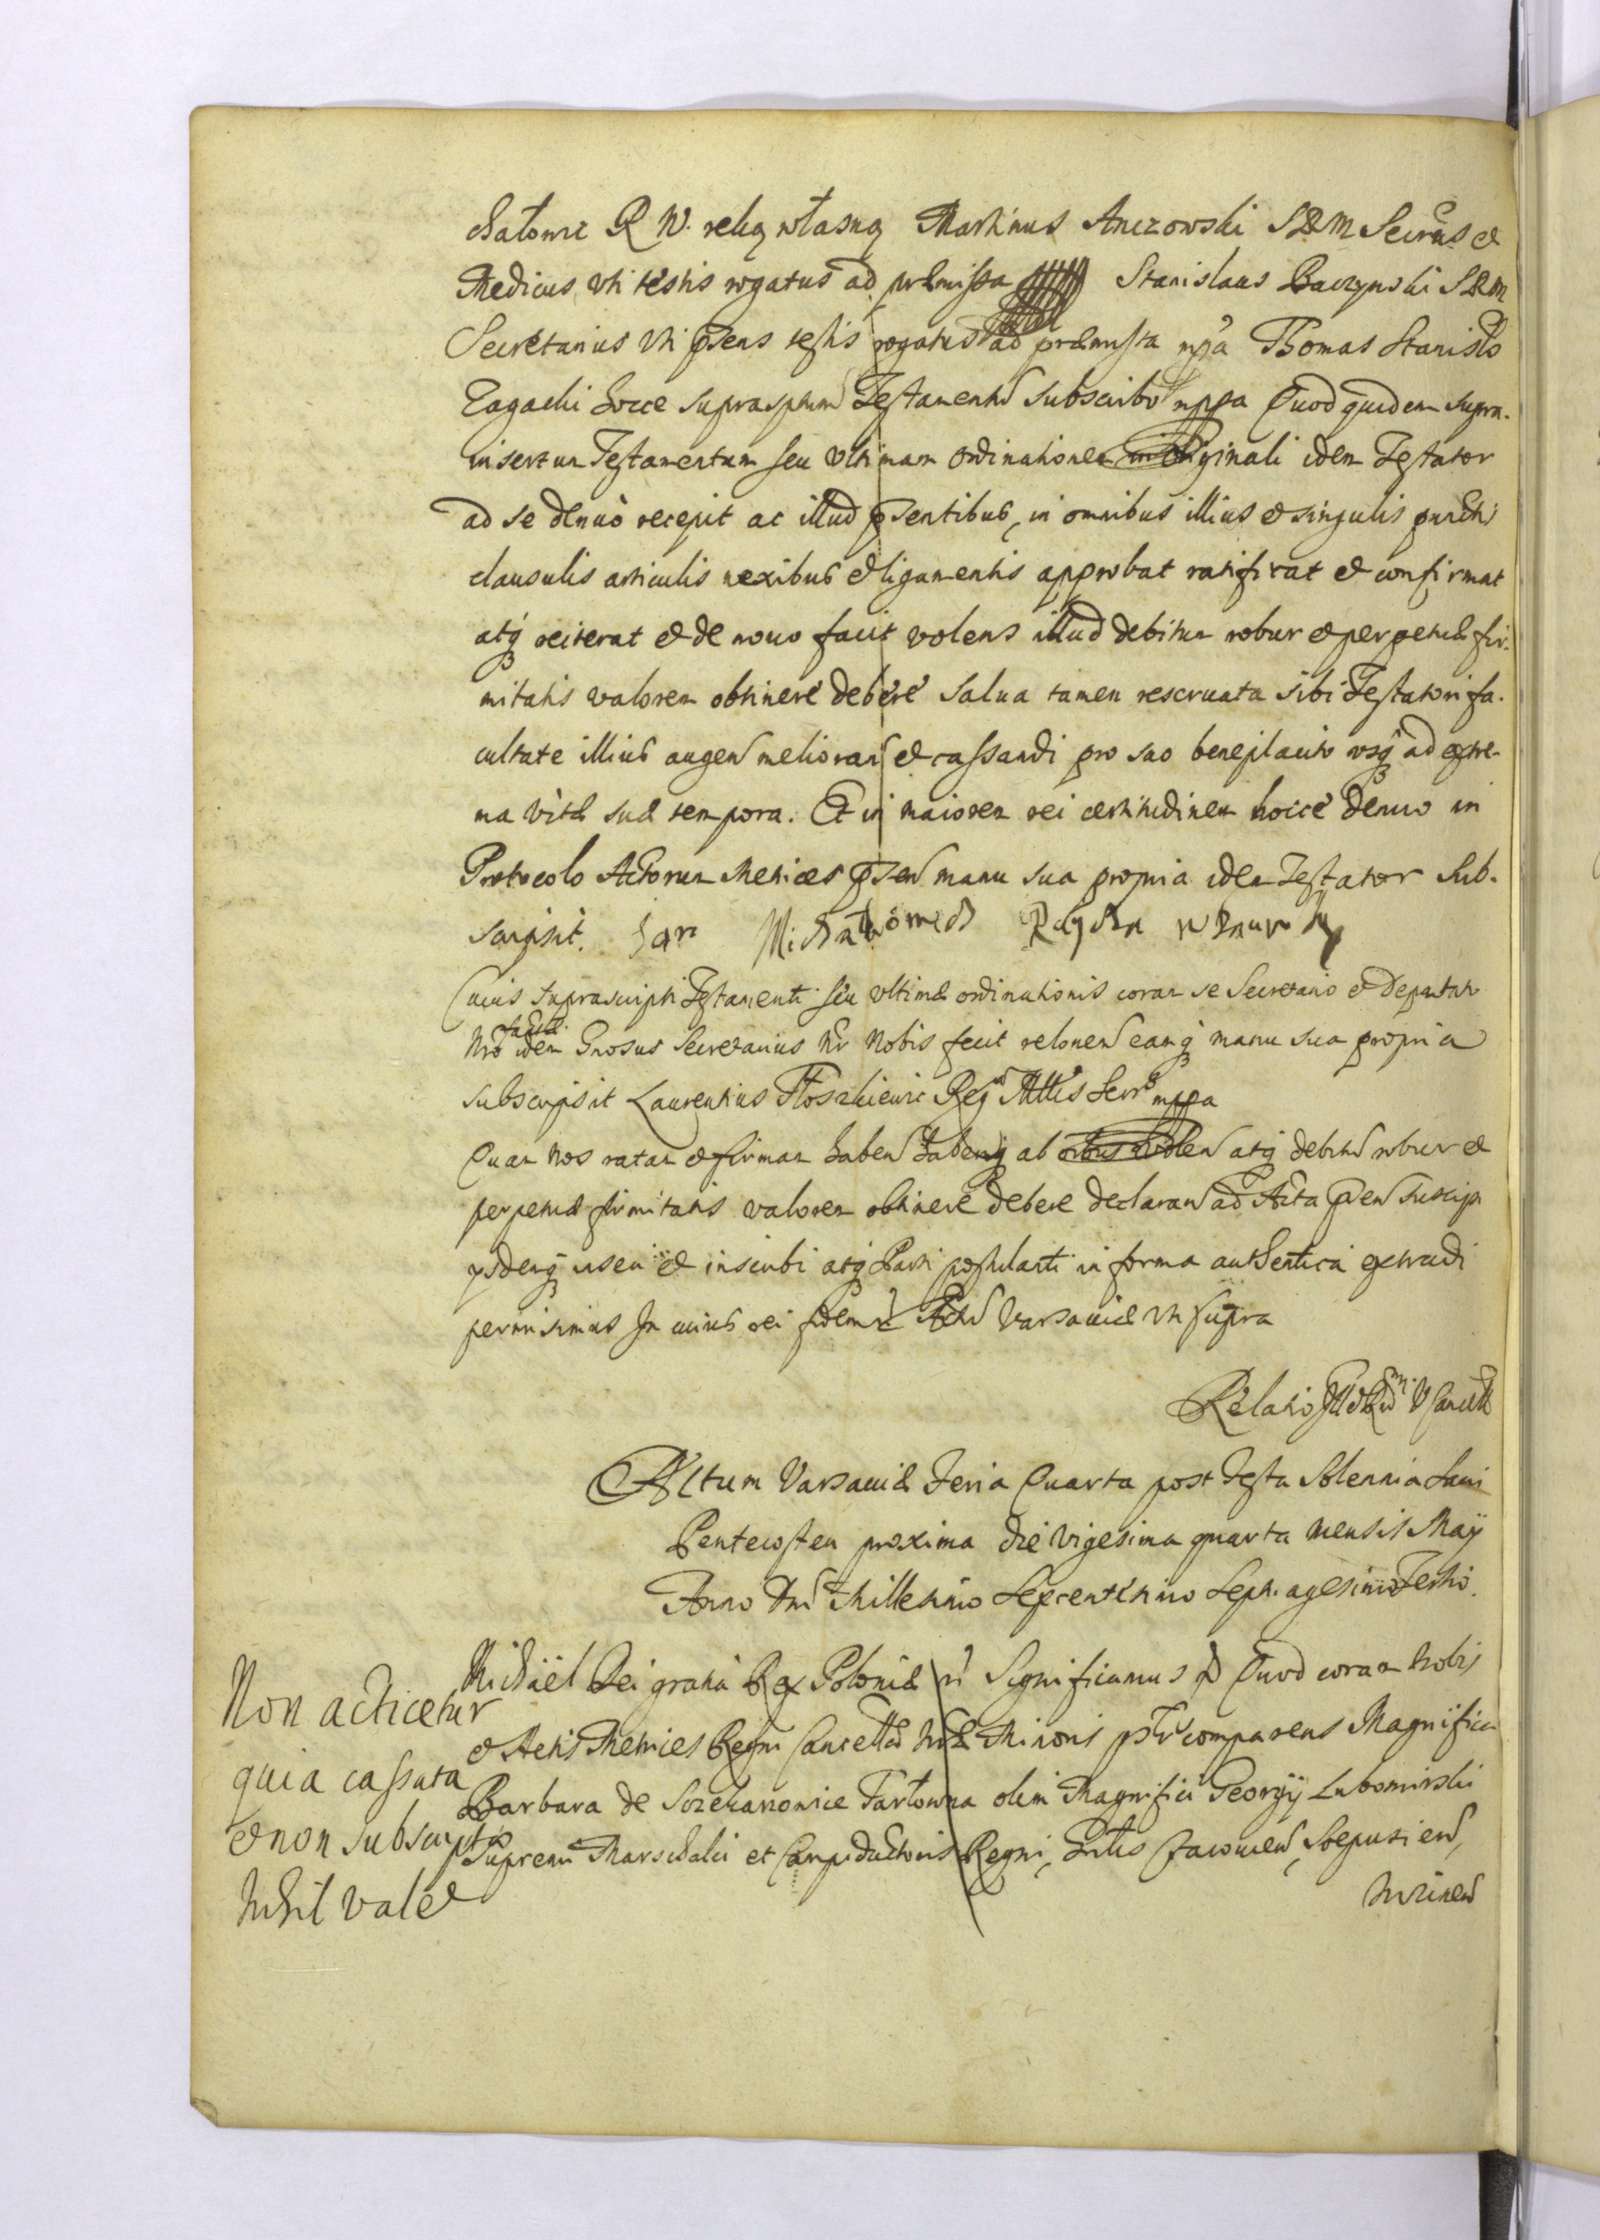 chatonic R W. ręką własną Martinus Anczowski SRM Secrus et
Medicus uti testis rogatus ad præmissa Stanislaus Baczynski SRM
Secretarius uti psens testis rogatus ad præmissa mpa Thomas Stanisło
Zagacki hocce suprasptum Testamentu subscribo mppa Quod quidem supra-
insertum Testamentum seu ultimam ordinationem in originali idem Testator
ad se denuò recepit ac illud psentibus, in omnibus illius et singulis punctis
clausulis articulis nexibus et ligamentis approbat ratificat et confirmat
atq reiterat et de nouo facit volens illud debitum robur et perpetuæ fir-
mitatis valorem obtinere debere salua tamen reseruata sibi Testatori fa-
cultate illius augen melioran et cassandi pro suo beneplacito usq ad extre-
ma vitæ suæ tempora. Et in maiorem rei certitudinem hocce denuo in
Protocolo Actorum Metrices psen manu sua propria idem Testator sub-
scripsit. Jan
Cuius suprascripti Testamenti seu ultimæ ordinationis coram se Secretario et Deputato
Nro factæ idem Gnosus Secretarius Nr Nobis fecit relonem eamq manu sua propria
subscripsit Laurentius Reg Mttis Secr mppa
Quam Nos ratam et firmam haben ab atq debitu robur et
perpetuæ firmitatis valorem obtinere debere declaran ad Acta psen suscipi
ysdemq inseri et inscribi atq Parti postulanti in forma authentica extradi
permisimus In cuius rei fidem Actu Varsauiæ ut supra
Relatio
Actum Varsauiæ Feria Quarta post Festa Solennia Sacri
Pentecosten proxima die vigesima quarta Mensis Maÿ
Anno Dni Millesimo Sexcentesimo Septuagesimo Tertio.
Michäel Dei gratia Rex Poloniæ Significamus Quod coram Nobis
et Actis Metrices Regni Cancell Minoris comparens Magnifica
Barbara de Sczekarzowice Tarłowna olim Magnifici Georgÿ Lubomirski
Supremi Marschalci et Campiductoris Regni, Gnlis Cracouien, Scepusien,
Nizinen
Non acticetur
quia cassata
et non subscripta
Nihil valet